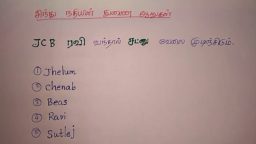 சிந்து நதியின் துணை ஆறுகள்
JCB ரவி வந்தால் சட்னு வேலை முடிந்திடும்.
① Jhelum
② Chenab
③ Beas
④ Ravi
⑤ Sutlej